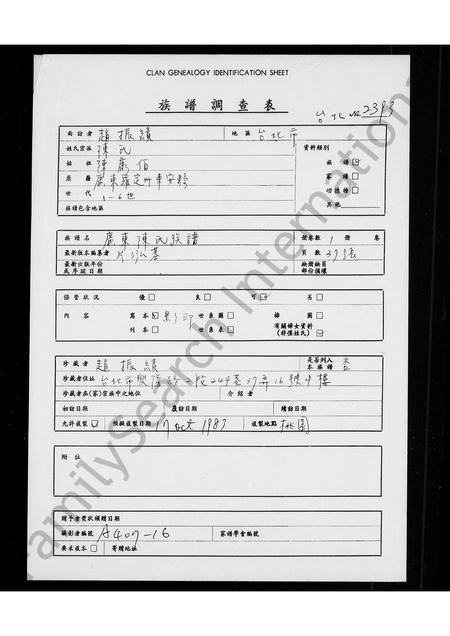 CLAN GENEALOGY IDENTIFICATION SHEET
族譜調查表
台北 No 2393
面訪者 趙振績 地區 台北市
姓氏宗派 陳氏 資料類別
始祖 陳 伯 族譜
原籍 廣東羅定州東安縣 家譜
世代 1-6世 功德榜
族譜包含地區 其他
族譜名 廣東陳氏族譜 冊卷數 1 冊 卷
最新版本編纂者 頁數 37張
最新出版年份 缺冊缺頁
或序跋日期 部份損壞
保管狀況 優 良 可 劣
內容 寫本 影印 世系圖 插圖
有關婦女資料
刊本 世系表 (非僅姓氏)
珍藏者 趙振績 是否列入本族譜 否
珍藏者住址 台北市興隆路2段244巷37弄16號4樓
珍藏者在(家)宗族中之地位 介紹者
初訪日期 歲訪日期 續訪日期
允許複製 預擬複製日期 17 Oct 1987 複製地點 桃園
附註
贈予者獎狀頒贈日期
攝影者編號 A407-16 家譜學會編號
要求眾本 寄贈地址
FamilySearch International